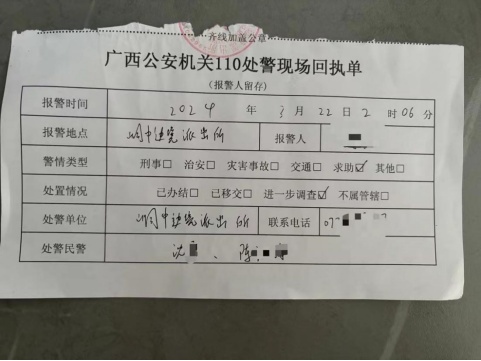 齐线加盖公章
广西公安机关110处警现场回执单
(报警人留存)
报警时间 2024 年 3月 22 日 2 时 06 分
报警地点 峒中边境派出所 报警人
警情类型 刑事□ 治安□ 灾害事故□ 交通□ 求助☑ 其他□
处置情况 已办结□ 已移交□ 进一步调查☑ 不属管辖□
处警单位 峒中边境派出所 联系电话 07
处警民警 沈 、陈